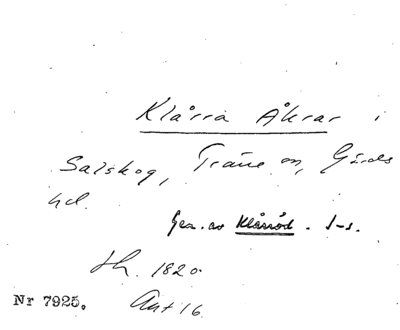 Klårra Åkrar i
Salskog, Träne sn, Gärds
hd.
Gen. av Klåröd. J-s.
Lh. 1820
Nr 7925. Akt 16